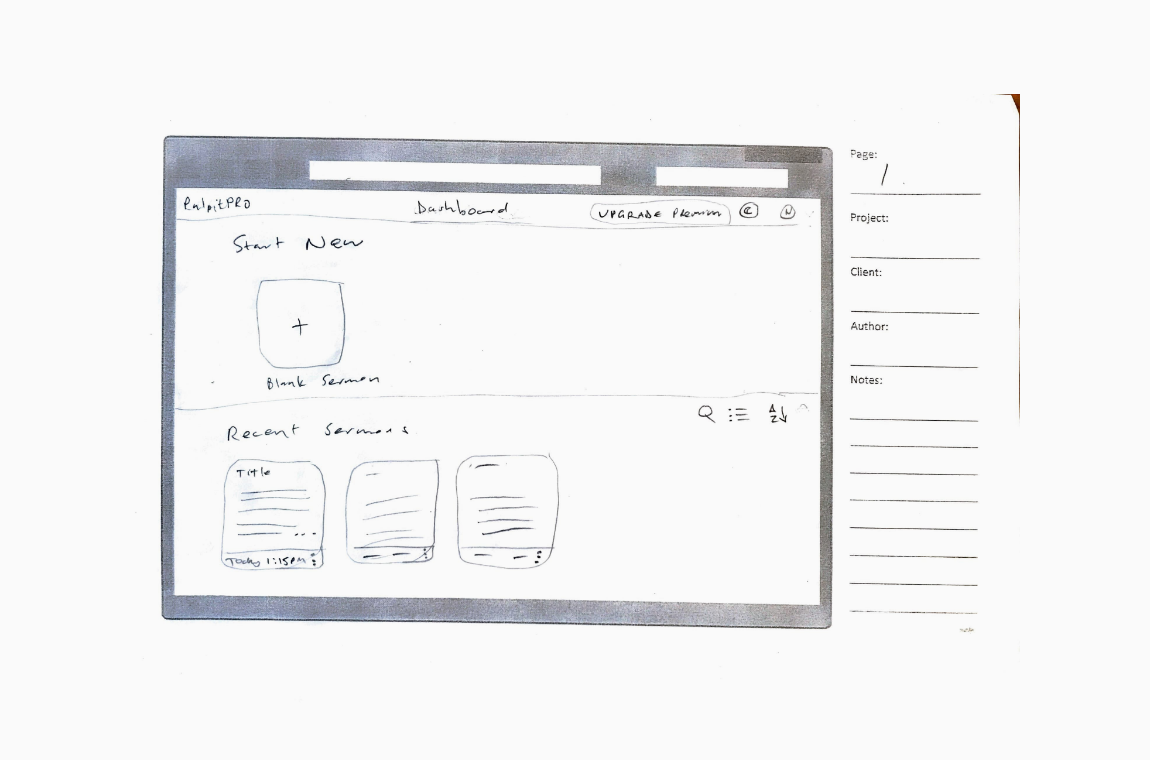 PulpitPRO
Dashboard
UPGRADE Premium
Start New
+
Blank Sermon
Recent Sermons
A
Z
Title
Today 1:15PM
Page:
1
Project:
Client:
Author:
Notes: